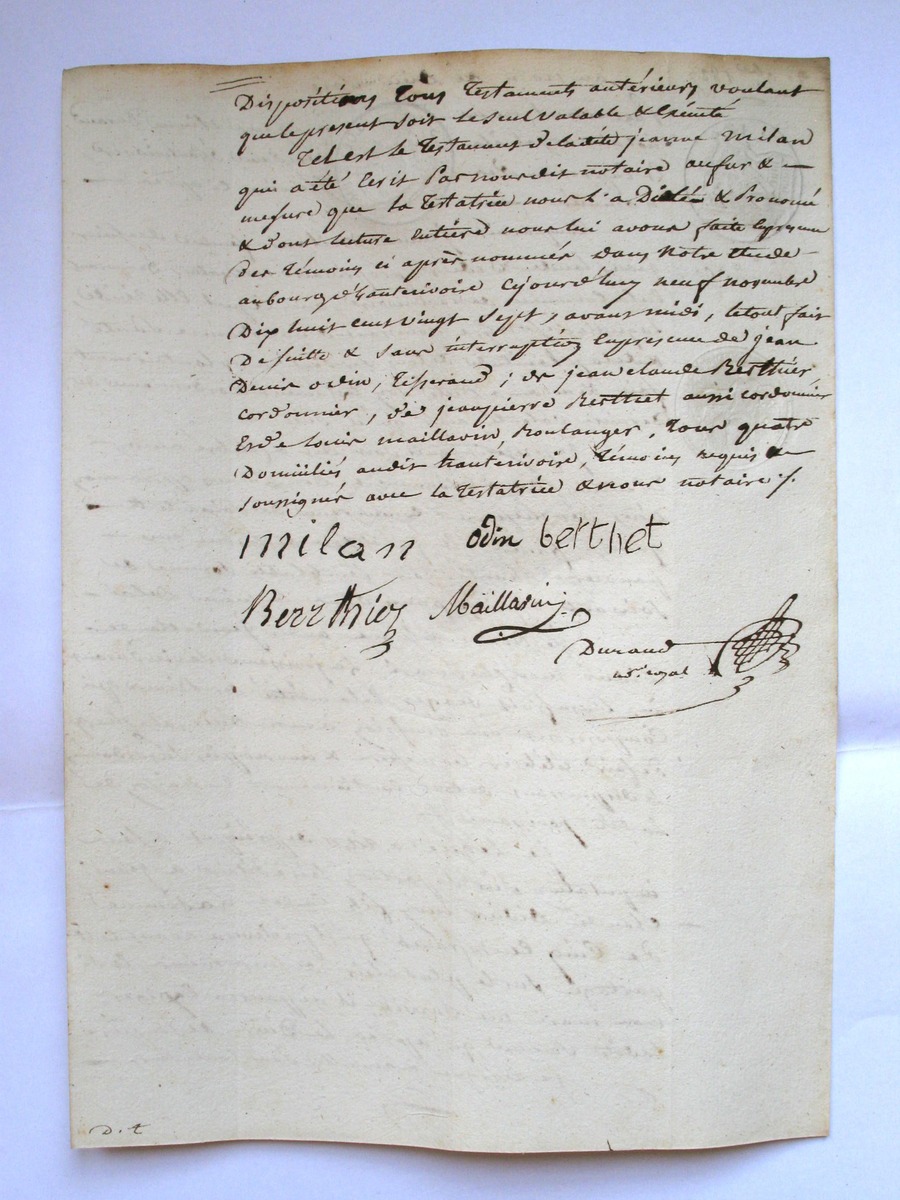 Dispositions tous testaments antérieurs voulant
que le present soit le seul valable & Exécuté
Tel est le testament de ladite jeanne milan
qui a été Ecrit Par nous dit notaire au fur & –
mesure que la testatrice nous l'a Dicté & Prononcé
& dont lecture Entière nous lui avons faite En presence
des témoins ci après nommés dans notre Etude
au bourg d'hauterivoire cejourd'huy neuf novembre
Dix huit cent vingt sept, avant midi, le tout fait
De suitte & sans interruption En presence de jean
Denis odin, tisserand ; de jean claude Berthier,
cordonnier, de jean pierre Berthet aussi cordonnier
Et de louis maillavin, Boulanger, tous quatre
Domiciliés audit hauterivoire, témoins requis &
soussignés avec la testatrice & nous notaire ./.
milan odin berthet
Berrthier Maillavin
Durand
nre. royal
D. t